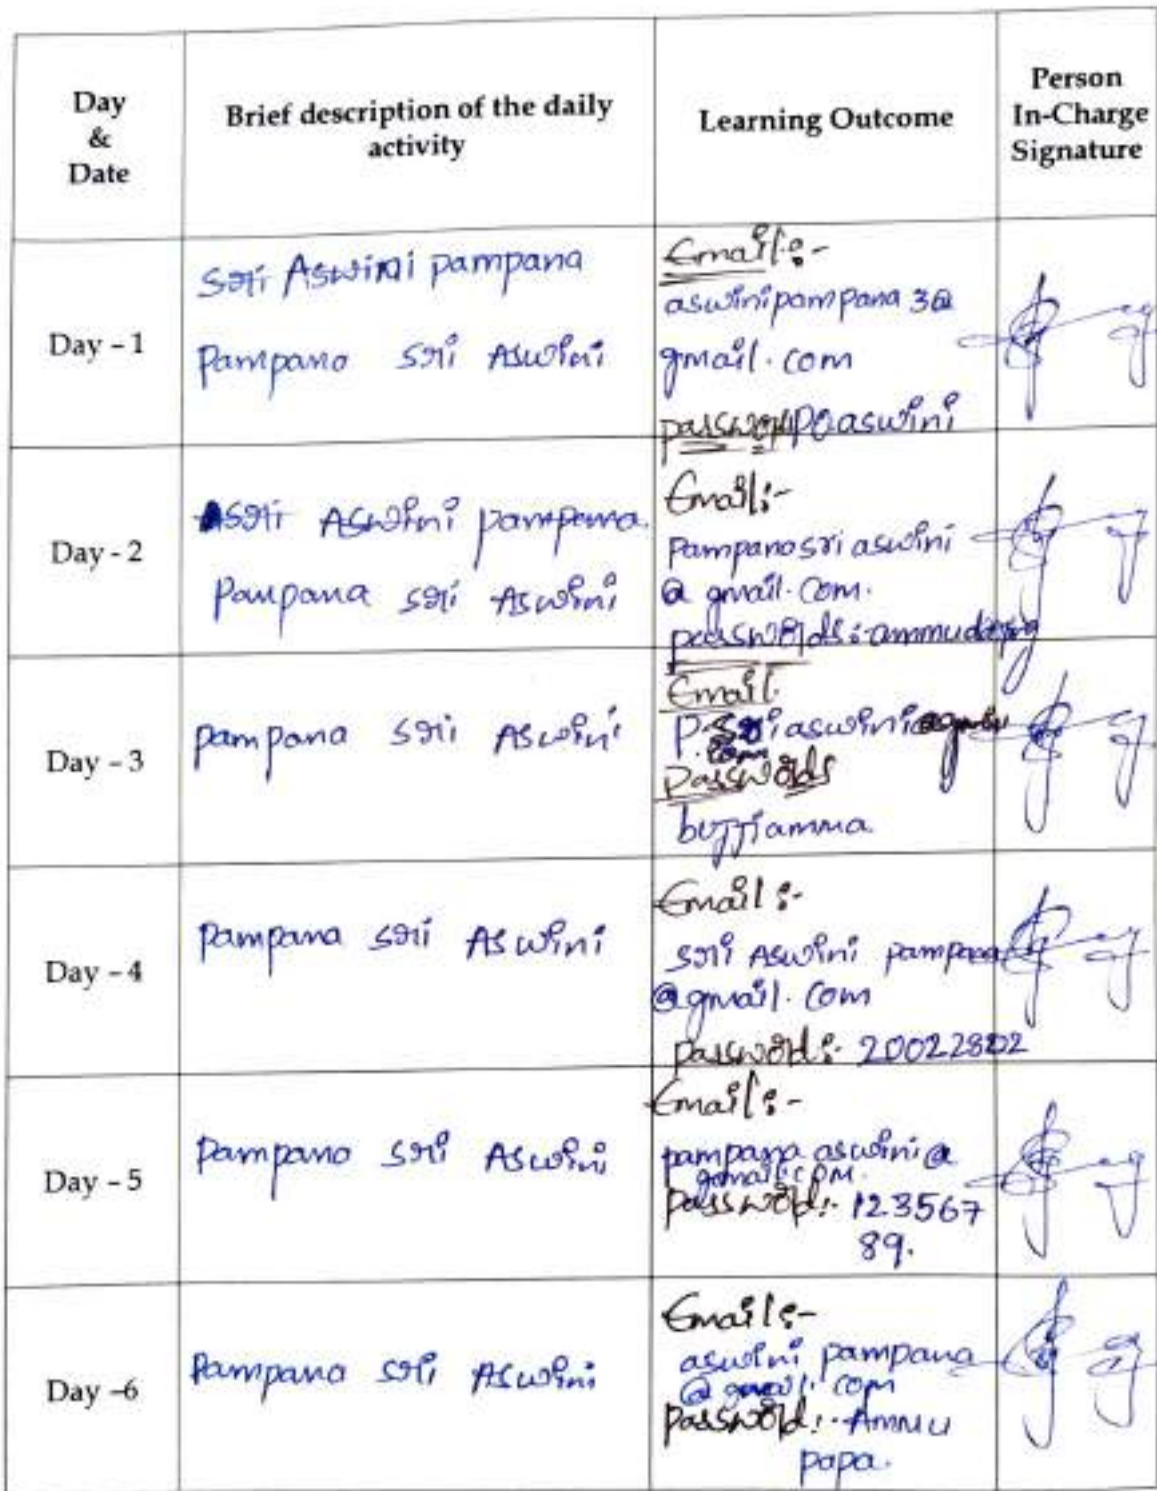 Day
&
Date
Brief description of the daily
activity
Learning Outcome
Person
In-Charge
Signature
Day – 1
Sri Aswini pampana
Pampana Sri Aswini
Email:-
aswinipampana 3@
gmail.com
Day - 2
Sri Aswini pampana.
Pampana Sri Aswini
Email:-
Pampanasri aswini
@ gmail.com.
Day – 3
pampana Sri Aswini
Email
Passwords
bujjiamma
Day – 4
Pampana Sri Aswini
Email :-
Sri Aswini pampana
@gmail.com
Password:- 20022802
Day – 5
Pampana Sri Aswini
Email:-
pampana aswini@
gmail.com.
Password:- 123567
89.
Day –6
Pampana Sri Aswini
Email:-
aswini pampana
@ gmail.com
Password:- Ammu
papa.